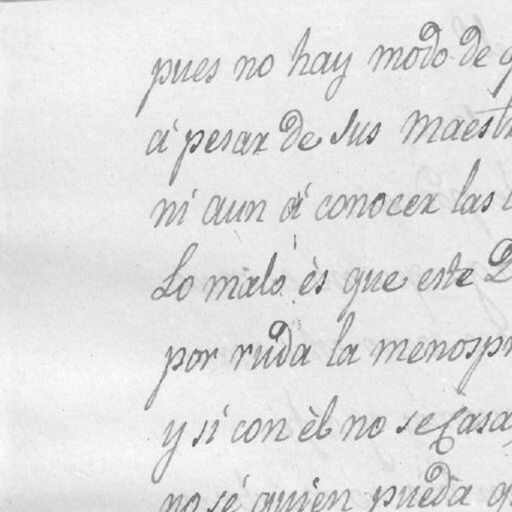 pues no hay modo de q
á pesar de sus maest
ni aun á conocer las
Lo malo és que este D
por ruda la menospr
y si con èl no se casa
no sé quien pueda q